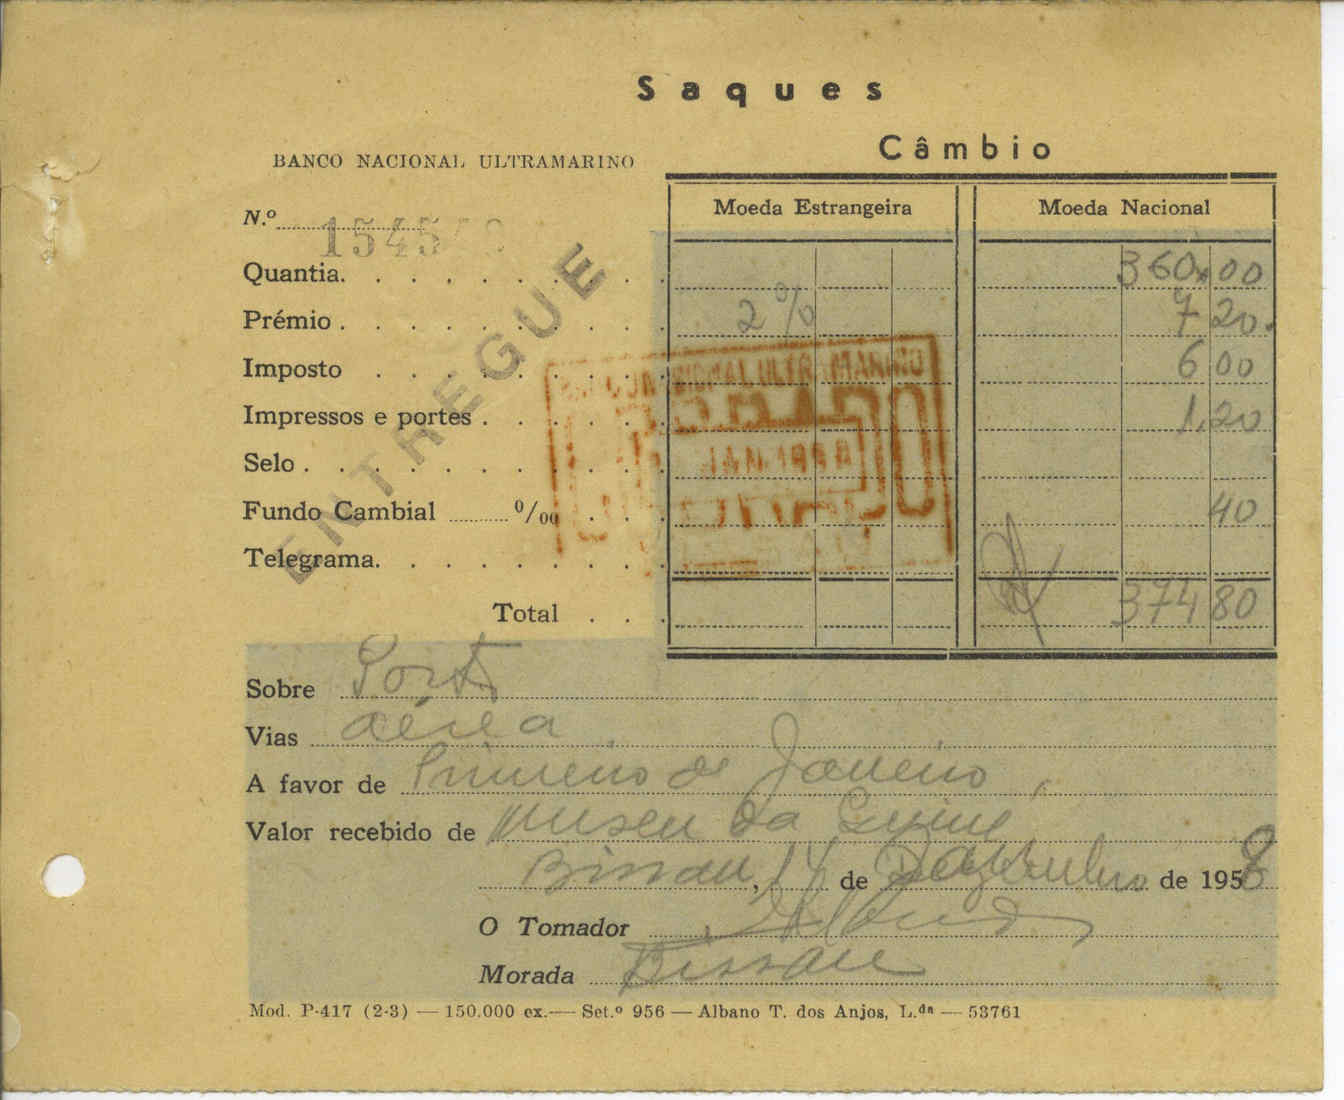 Saques
Câmbio
BANCO NACIONAL ULTRAMARINO
Moeda Estrangeira Moeda Nacional
N.º 1545
Quantia. 360.00
Prémio. 2% 7 20.
Imposto 6 00
Impressos e portes. 1.20
Selo.
Fundo Cambial 0/00 40
Telegrama.
Total 374 80
ENTREGUE
Sobre Porto
Vias aérea
A favor de Primeiro de Janeiro,
Valor recebido de Museu da Guiné
Bissau, 14 de Dezembro de 1958
O Tomador
Morada Bissau
Mod. P-417 (2-3) — 150.000 ex. — Set.º 956 — Albano T. dos Anjos, L.da — 53761